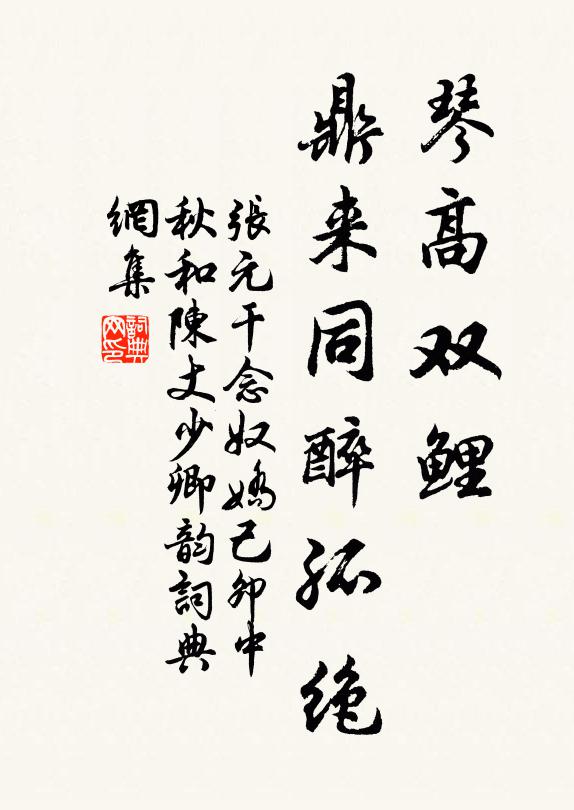 琴高双鲤
鼎来同醉孤绝
張元干念奴嬌己卯中
秋和陳丈少卿韵詞典
網集
詞典
网印